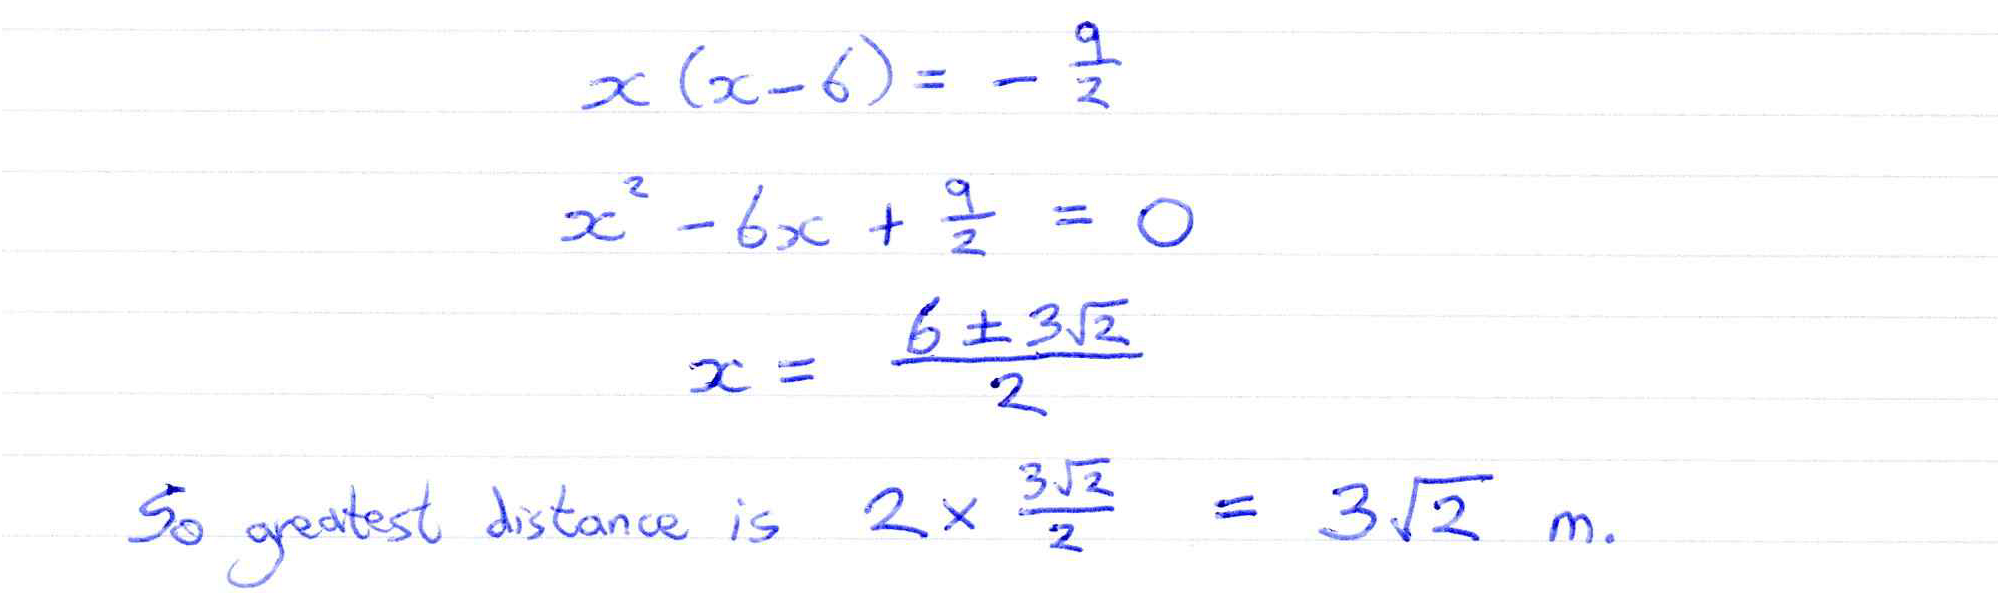 x(x-6) = - 9/2
x² - 6x + 9/2 = 0
x = (6 ± 3√2)/2
So greatest distance is 2 × 3√2/2 = 3√2 m.